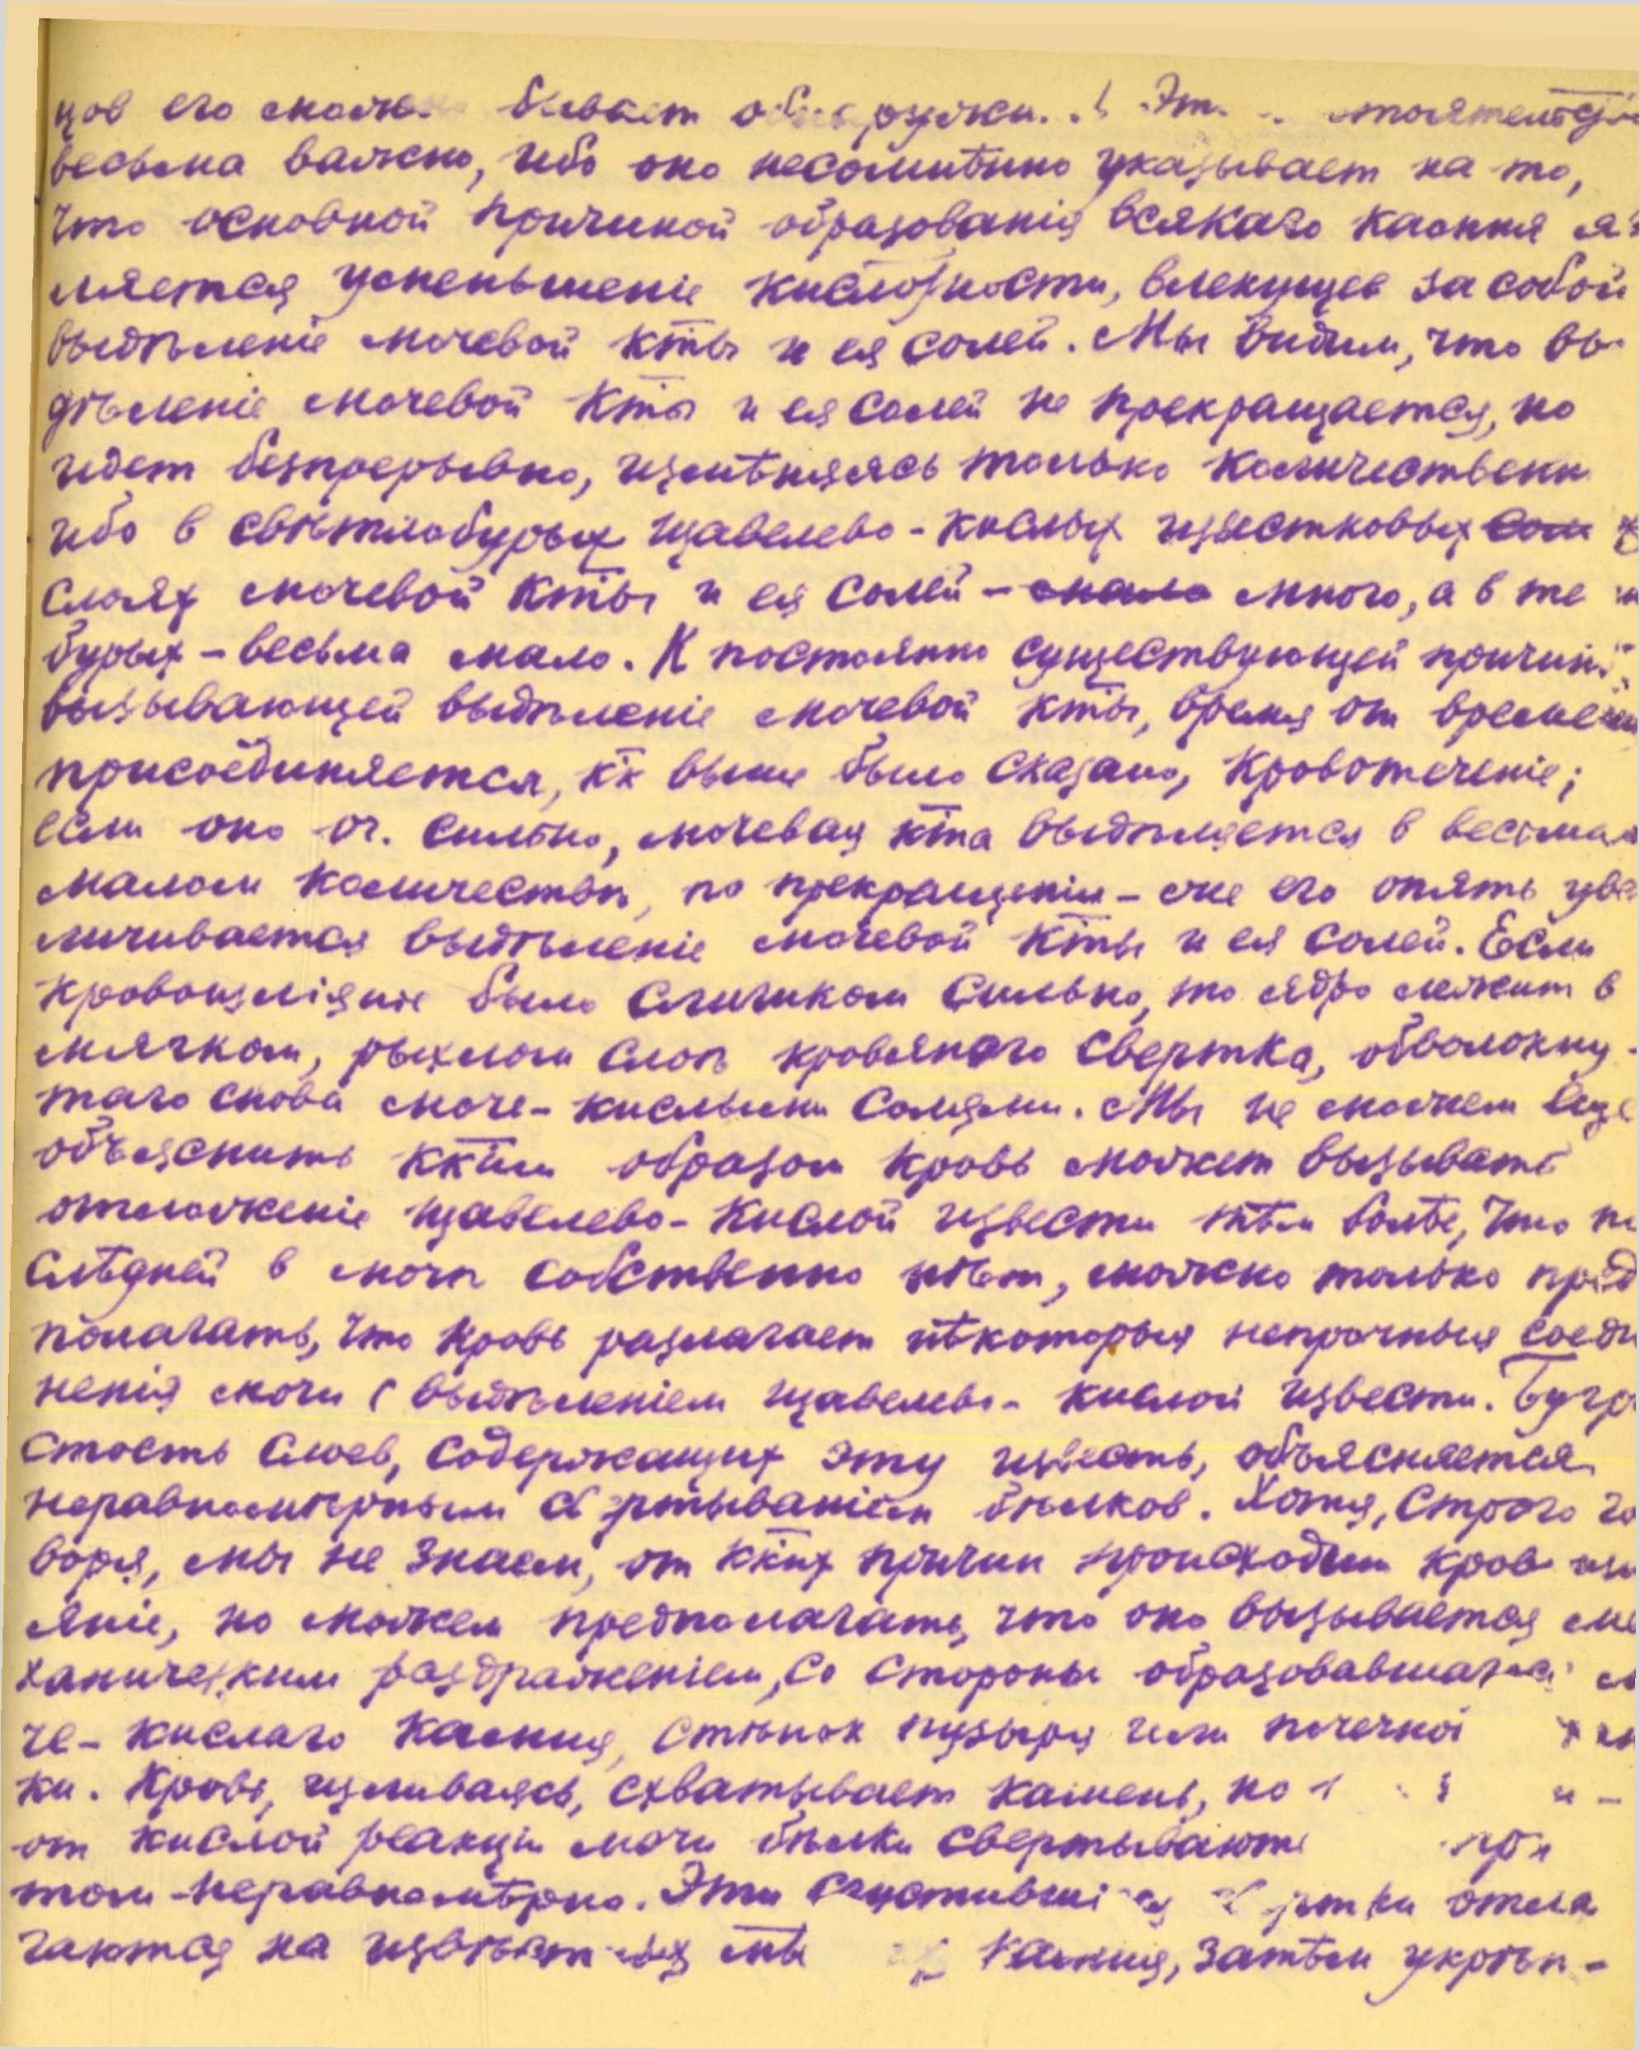 цов его можн бывает обнаружи Эт
весьма важно, ибо оно несомнѣнно указывает на то,
что основной причиной образованія всякаго камня яв
ляется уменьшеніе кислотности, влекущее за собой
выдѣленіе мочевой кты и ея солей. Мы видим, что вы
дѣленіе мочевой кты и ея солей не прекращается, но
идет безпрерывно, измѣняясь только количественн
ибо в свѣтлобурых щавелево-кислых известковых
слоях мочевой кты и ея солей – мало много, а в те
бурых – весьма мало. К постоянно существующей причин
вызывающей выдѣленіе мочевой кты, время от времени
присоединяется, кк выше было сказано, кровотеченіе;
если оно оч. сильно, мочевая кта выдѣляется в весьма
малом количествѣ, по прекращеніи – же его опять уве
личивается выдѣленіе мочевой кты и ея солей. Если
кровоизліяніе было слишком сильно, то ядро лежит в
мягком, рыхлом слоѣ кровяного свертка, обволокну-
таго снова моче-кислыми солями. Мы не можем еще
объяснить ккйм образом кровь может вызывать
отложеніе щавелево-кислой извести тѣм болѣе, что по
слѣдней в мочѣ собственно нѣт, можно только пред
полагать, что кровь разлагает нѣкоторыя непрочныя соеди
ненія мочи с выдѣленіем щавелево-кислой извести. Бугри
стость слоев, содержащих эту известь, объясняется
неравномѣрным свертываніем бѣлков. Хотя, строго го
воря, мы не знаем, от ккйх причин происходит кров изл
яніе, но можем предполагать, что оно вызывается ме
ханическим раздраженіем, со стороны образовавшагося м
че-кислаго камня, стѣнок пузыря или почечной
ки. Кровь, изливаясь, схватывает камень, но
от кислой реакціи мочи бѣлки свертывают при
том – неравномѣрно. Эти сгустивші отла
гаются на камня, затѣм укрѣп-